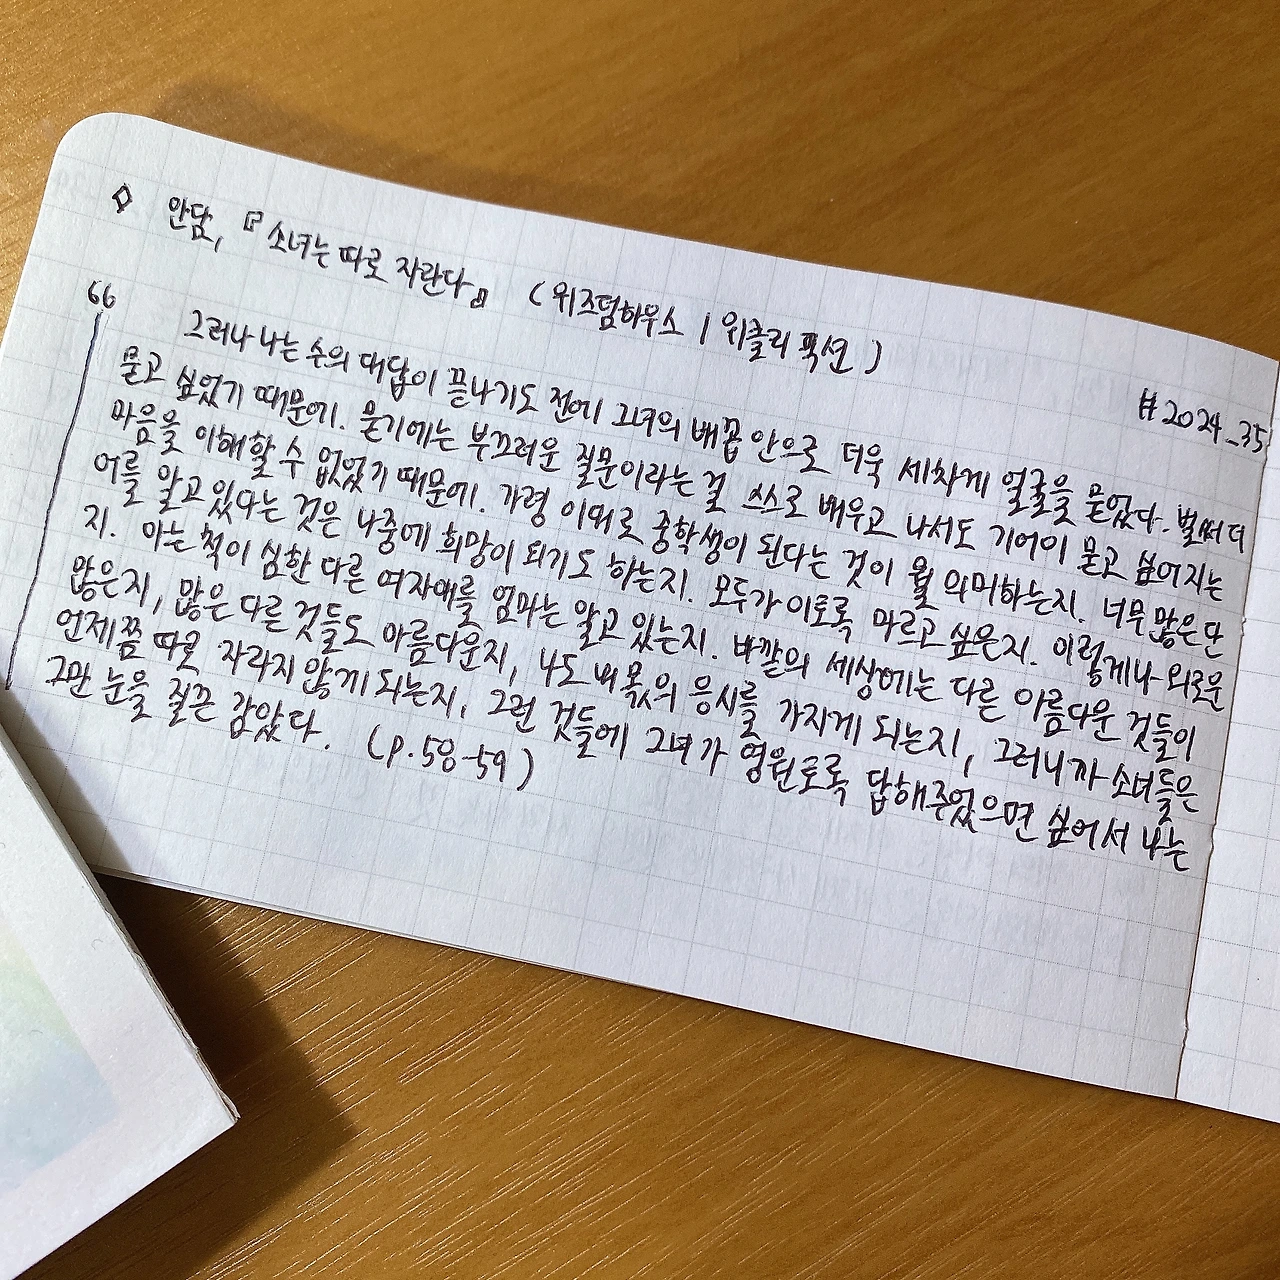 ◇ 안담, 『소녀는 따로 자란다』 (위즈덤하우스 | 위클리 픽션)
#2024_35
66
그러나 나는 수의 대답이 끝나기도 전에 그녀의 배꼽 안으로 더욱 세차게 얼굴을 묻었다. 벌써 더
묻고 싶었기 때문에. 묻기에는 부끄러운 질문이라는 걸 스스로 배우고 나서도 기어이 묻고 싶어지는
마음을 이해할 수 없었기 때문에. 가령 이대로 중학생이 된다는 것이 뭘 의미하는지. 너무 많은 단
어를 알고 있다는 것은 나중에 희망이 되기도 하는지. 모두가 이토록 마르고 싶은지. 이렇게나 외로운
지. 아는 척이 심한 다른 여자애를 엄마는 알고 있는지. 바깥의 세상에는 다른 아름다운 것들이
많은지, 많은 다른 것들도 아름다운지, 나도 내 몫의 응시를 가지게 되는지, 그러니까 소녀들은
언제쯤 따로 자라지 않게 되는지, 그런 것들에 그녀가 영원토록 답해주었으면 싶어서 나는
그만 눈을 질끈 감았다. (p.58-59)